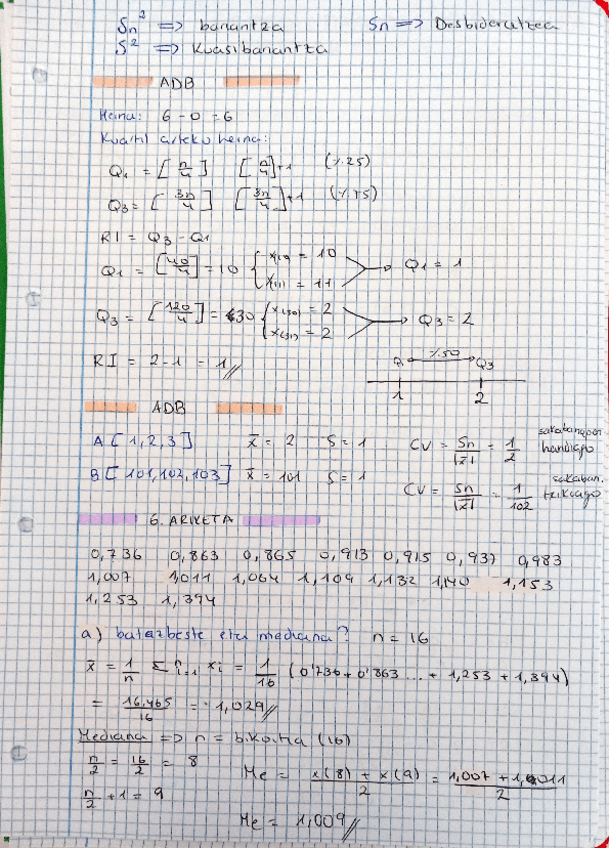 Sn² => bariantza Sn => Desbideratzea
S² => Kuasibariantza
ADB
Heina: 6 - 0 = 6
Kuartil arteko heina:
Q1 = [n/4] [n/4]+1 (%25)
Q3 = [3n/4] [3n/4]+1 (%75)
RI = Q3 - Q1
Q1 = [40/4] = 10 { x(10) = 10 x(11) = 11 → Q1 = 1
Q3 = [120/4] = 30 { x(30) = 2 x(31) = 2 → Q3 = 2
RI = 2 - 1 = 1//
Q1 %50 Q3
1 2
ADB
A [1, 2, 3] x̄ = 2 S = 1 CV = Sn/|x̄| = 1/2 handiago
B [101, 102, 103] x̄ = 101 S = 1 CV = Sn/|x̄| = 1/102 sakaban. txikiago
6. ARIKETA
0,736 0,863 0,865 0,913 0,915 0,937 0,983
1,007 1,011 1,064 1,109 1,132 1,140 1,153
1,253 1,394
a) batazbeste eta mediana? n = 16
x̄ = 1/n Σⁿi=1 xi = 1/16 (0'736 + 0'863 ... + 1,253 + 1,394)
= 16,465/16 = 1,029//
Mediana => n = bikoitia (16)
n/2 = 16/2 = 8 Me = x(8) + x(9)/2 = 1,007 + 1,011/2
n/2 + 1 = 9
Me = 1,009//